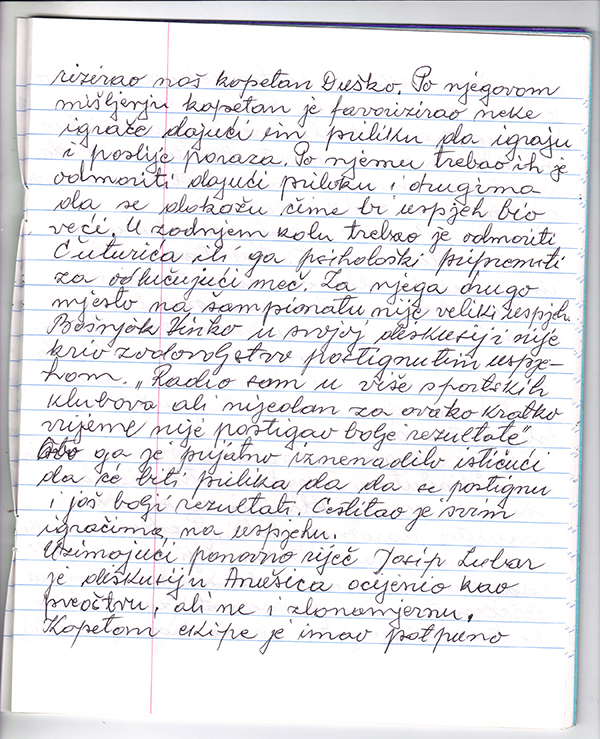 rizirao naš kapetan Duško. Po njegovom
mišljenju kapetan je favorizirao neke
igrače dajući im priliku da igraju
i poslije poraza. Po njemu trebao ih je
odmoriti dajući priliku i drugima
da se dokažu čime bi uspjeh bio
veći. U zadnjem kolu trebao je odmoriti
Čuturića ili ga psihološki pripremiti
za odlučujući meč. Za njega drugo
mjesto na šampionatu nije veliki uspjeh.
Bošnjak Vinko u svojoj diskusiji nije
krio zadovoljstvo postignutim uspje-
hom. „Radio sam u više sportskih
klubova ali nijedan za ovako kratko
vrijeme nije postigao bolje rezultate"
što ga je prijatno iznenadilo ističući
da će biti prilika da da se postignu
i još bolji rezultati. Čestitao je svim
igračima na uspjehu.
Uzimajući ponovno riječ Josip Lubar
je diskusiju Anušića ocijenio kao
preoštru, ali ne i zlonamjernu.
Kapetan ekipe je imao potpuno